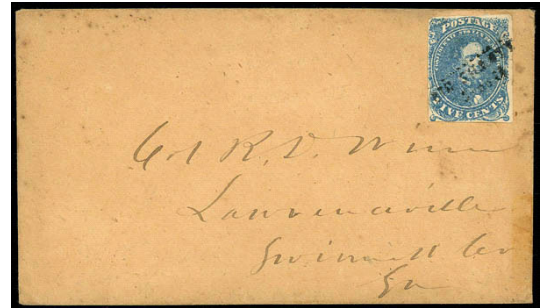 POSTAGE
FIVE CENTS
Col R. D. Winn
Lawrenceville
Gwinnett Co
Ga